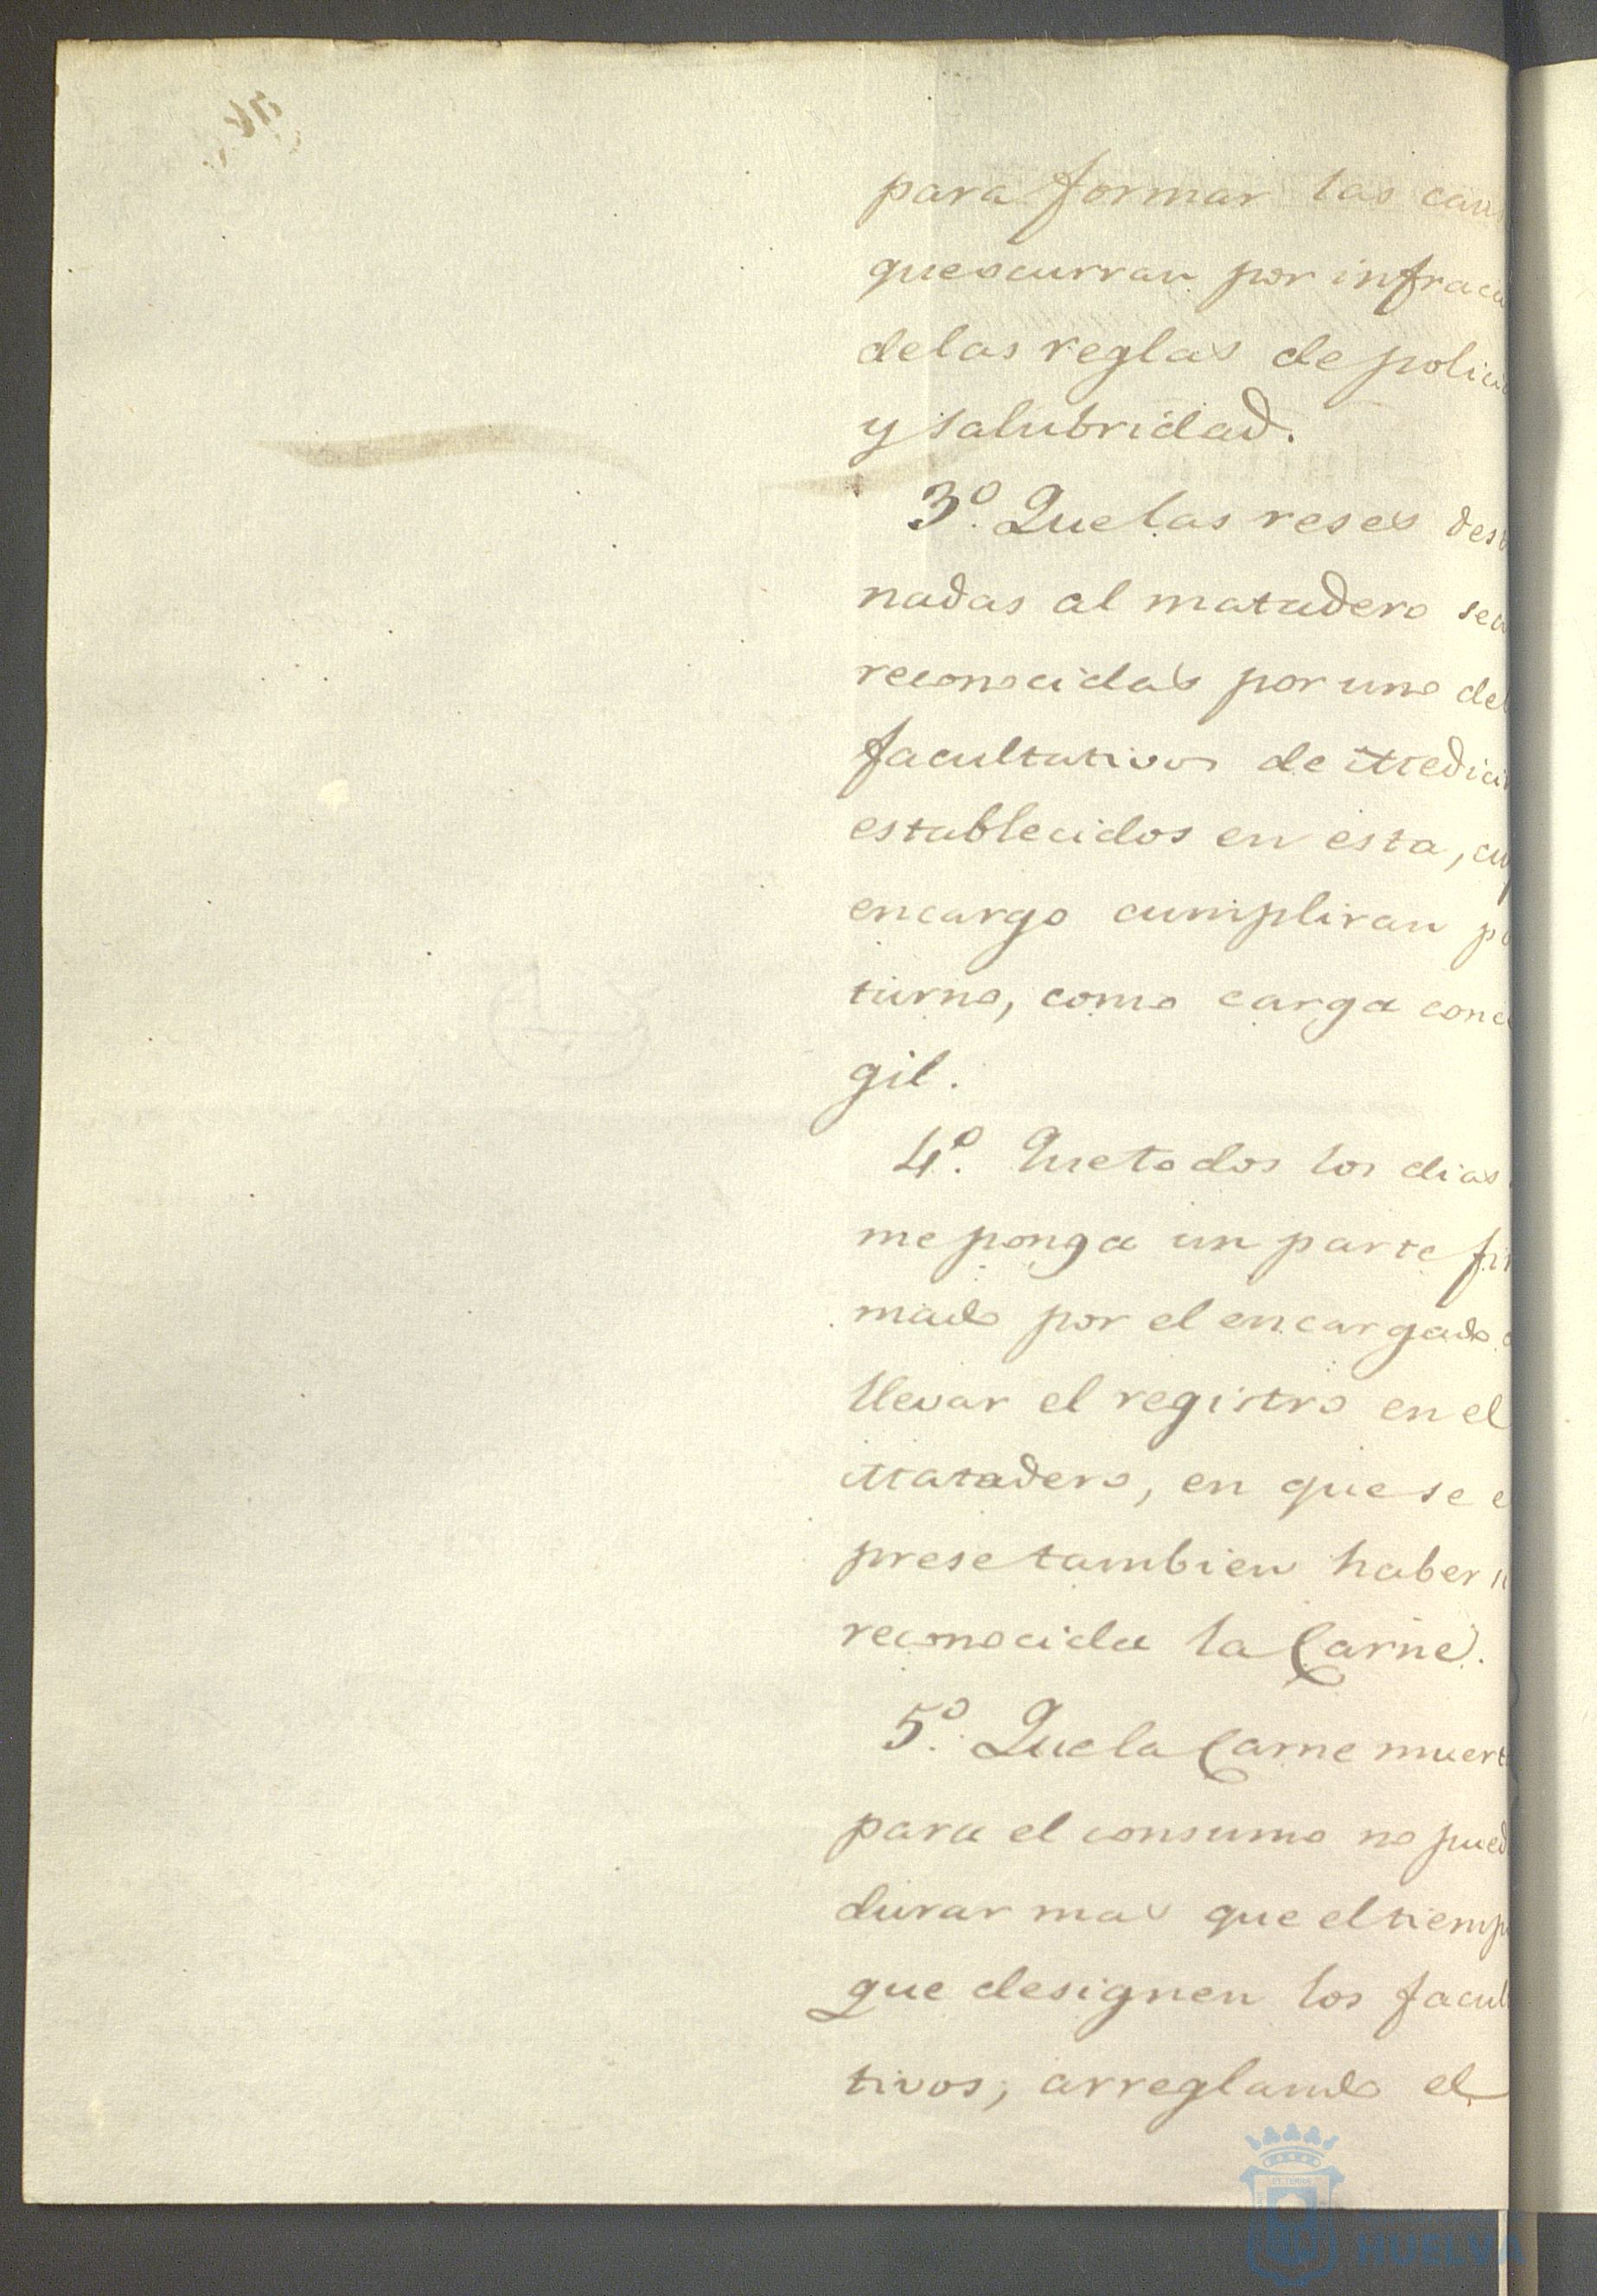 para formar las caus
que ocurran por infracci
de las reglas de polici
y salubridad.
3º. Que las reses desti
nadas al matadero sea
reconocidas por uno del
facultativos de Medicin
establecidos en esta, cuy
encargo cumpliran po
turno, como carga conce
gil.
4º. Que todos los dias
me ponga un parte fir
mado por el encargado
llevar el registro en el
Matadero, en que se e
prese tambien haber
reconocida la Carne.
5º. Que la Carne muert
para el consumo no pued
durar mas que el tiemp
que designen los facul
tivos; arreglando el
HUELVA